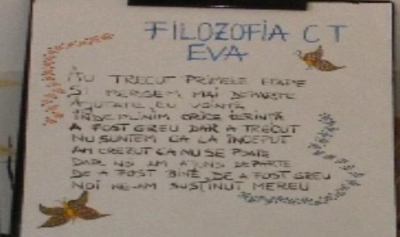 FILOZOFIA CT
EVA
AU TRECUT PRIMELE ETAPE
SI MERGEM MAI DEPARTE
AJUTATE CU VOINTA
INDEPLINIM ORICE DORINTA
A FOST GREU DAR A TRECUT
NU SUNTEM CA LA INCEPUT
AM CREZUT CA NU SE POATE
DAR NOI AM AJUNS DEPARTE
DE A FOST BINE, DE A FOST GREU
NOI NE-AM SUSTINUT MEREU